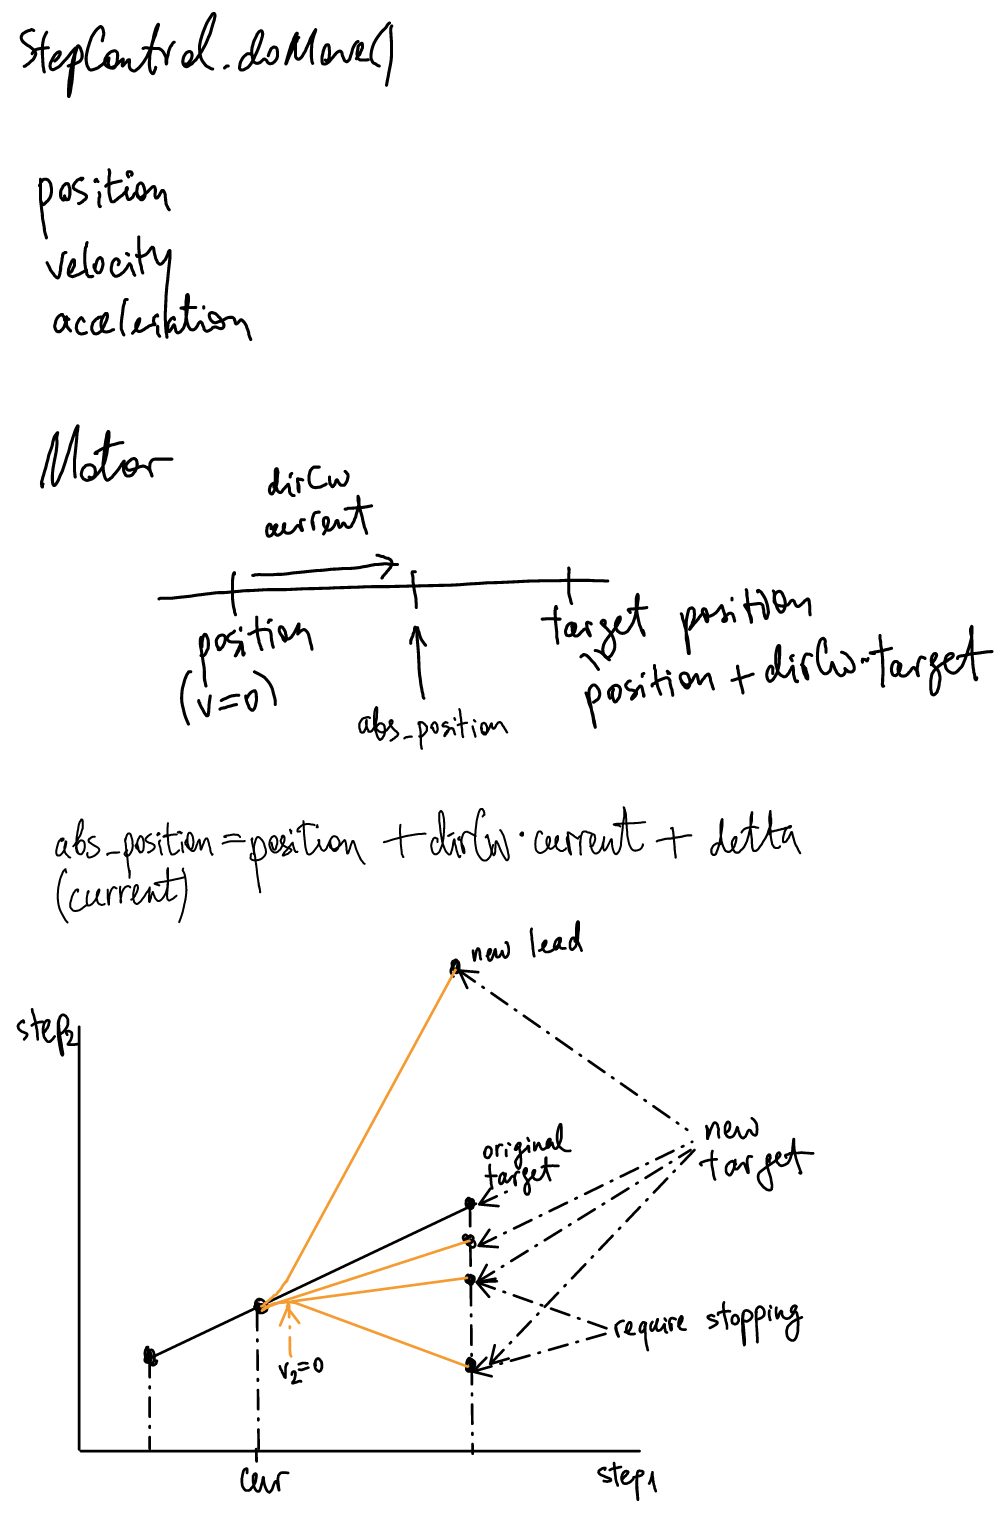 StepControl.doMove()
position
velocity
acceleration
Motor
dirCw
current
position
(v=0)
abs_position
target position
=
position + dirCw·target
abs_position = position + dirCw·current + delta
(current)
new lead
step2
original
target
new
target
require stopping
v2=0
cur
step1